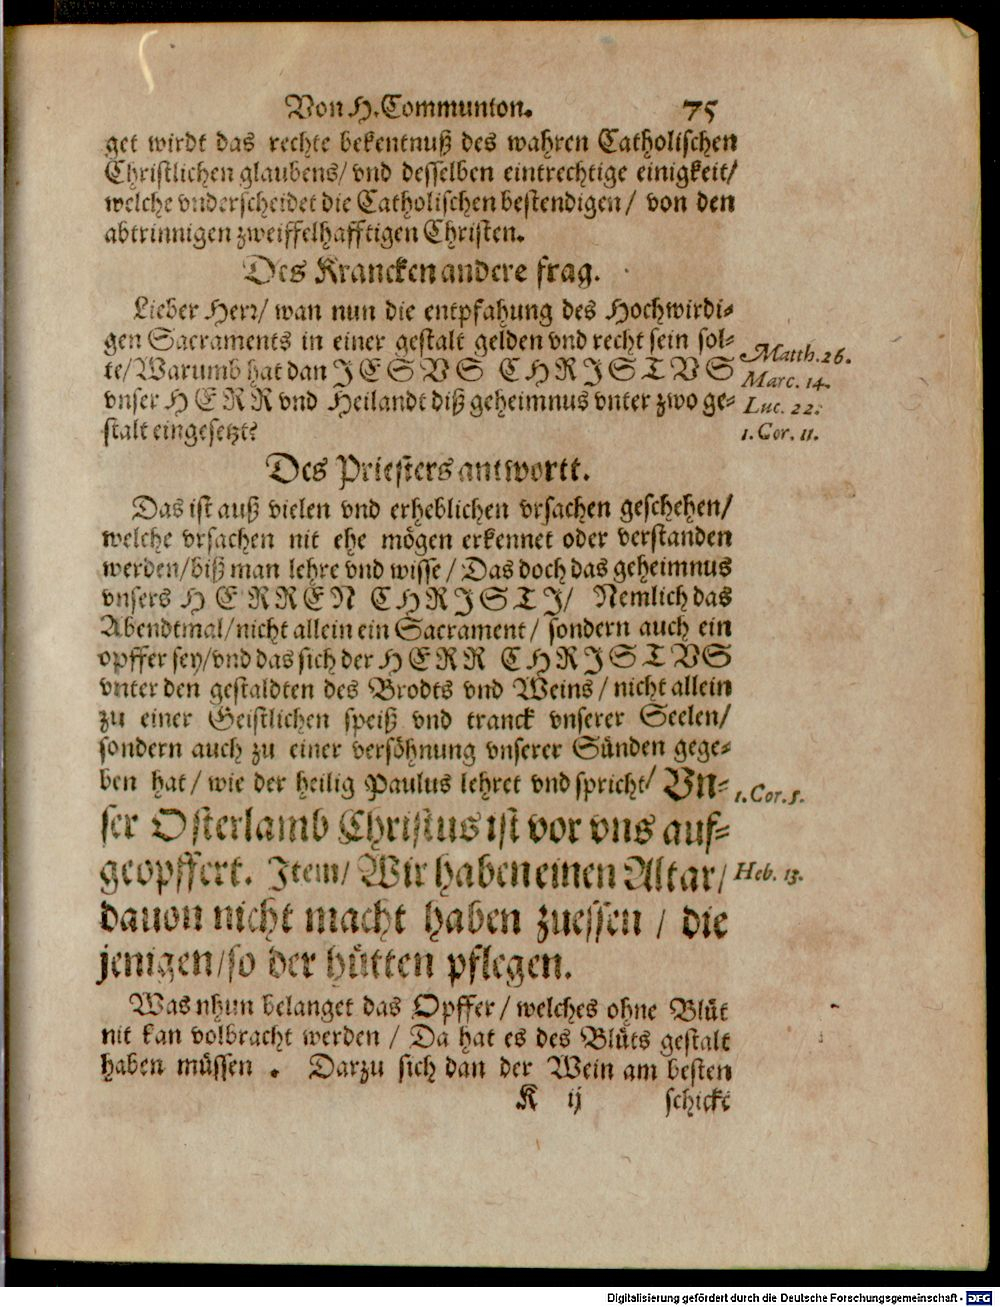 Von H. Communion. 75
get wirdt das rechte bekentnuß des wahren Catholischen
Christlichen glaubens/ vnd desselben eintrechtige einigkeit/
welche vnderscheidet die Catholischen bestendigen/ von den
abtrinnigen zweiffelhafftigen Christen.
Des Krancken andere frag.
Lieber Herr/ wan nun die entpfahung des Hochwirdi-
gen Sacraments in einer gestalt gelden vnd recht sein sol-
te/ Warumb hat dan JESVS CHRJSTVS
vnser HERR vnd Heilandt diß geheimnus vnter zwo ge-
stalt eingesetzt?
Matth. 26.
Marc. 14.
Luc. 22.
1. Cor. 11.
Des Priesters antwortt.
Das ist auß vielen vnd erheblichen vrsachen geschehen/
welche vrsachen nit ehe mögen erkennet oder verstanden
werden/ biß man lehre vnd wisse/ Das doch das geheimnus
vnsers HERREN CHRJSTJ/ Nemlich das
Abendtmal/ nicht allein ein Sacrament/ sondern auch ein
opffer sey/ vnd das sich der HERR CHRJSTVS
vnter den gestaldten des Brodts vnd Weins/ nicht allein
zu einer Geistlichen speiß vnd tranck vnserer Seelen/
sondern auch zu einer versöhnung vnserer Sünden gege-
ben hat/ wie der heilig Paulus lehret vnd spricht/ Vn-
1. Cor. 5.
ser Osterlamb Christus ist vor vns auf-
geopffert. Item/ Wir haben einen Altar/
Heb. 13.
dauon nicht macht haben zuessen/ die
jenigen/ so der hütten pflegen.
Was nhun belanget das Opffer/ welches ohne Blůt
nit kan volbracht werden/ Da hat es des Blůts gestalt
haben müssen. Darzu sich dan der Wein am besten
K ij schickt
Digitalisierung gefördert durch die Deutsche Forschungsgemeinschaft - DFG